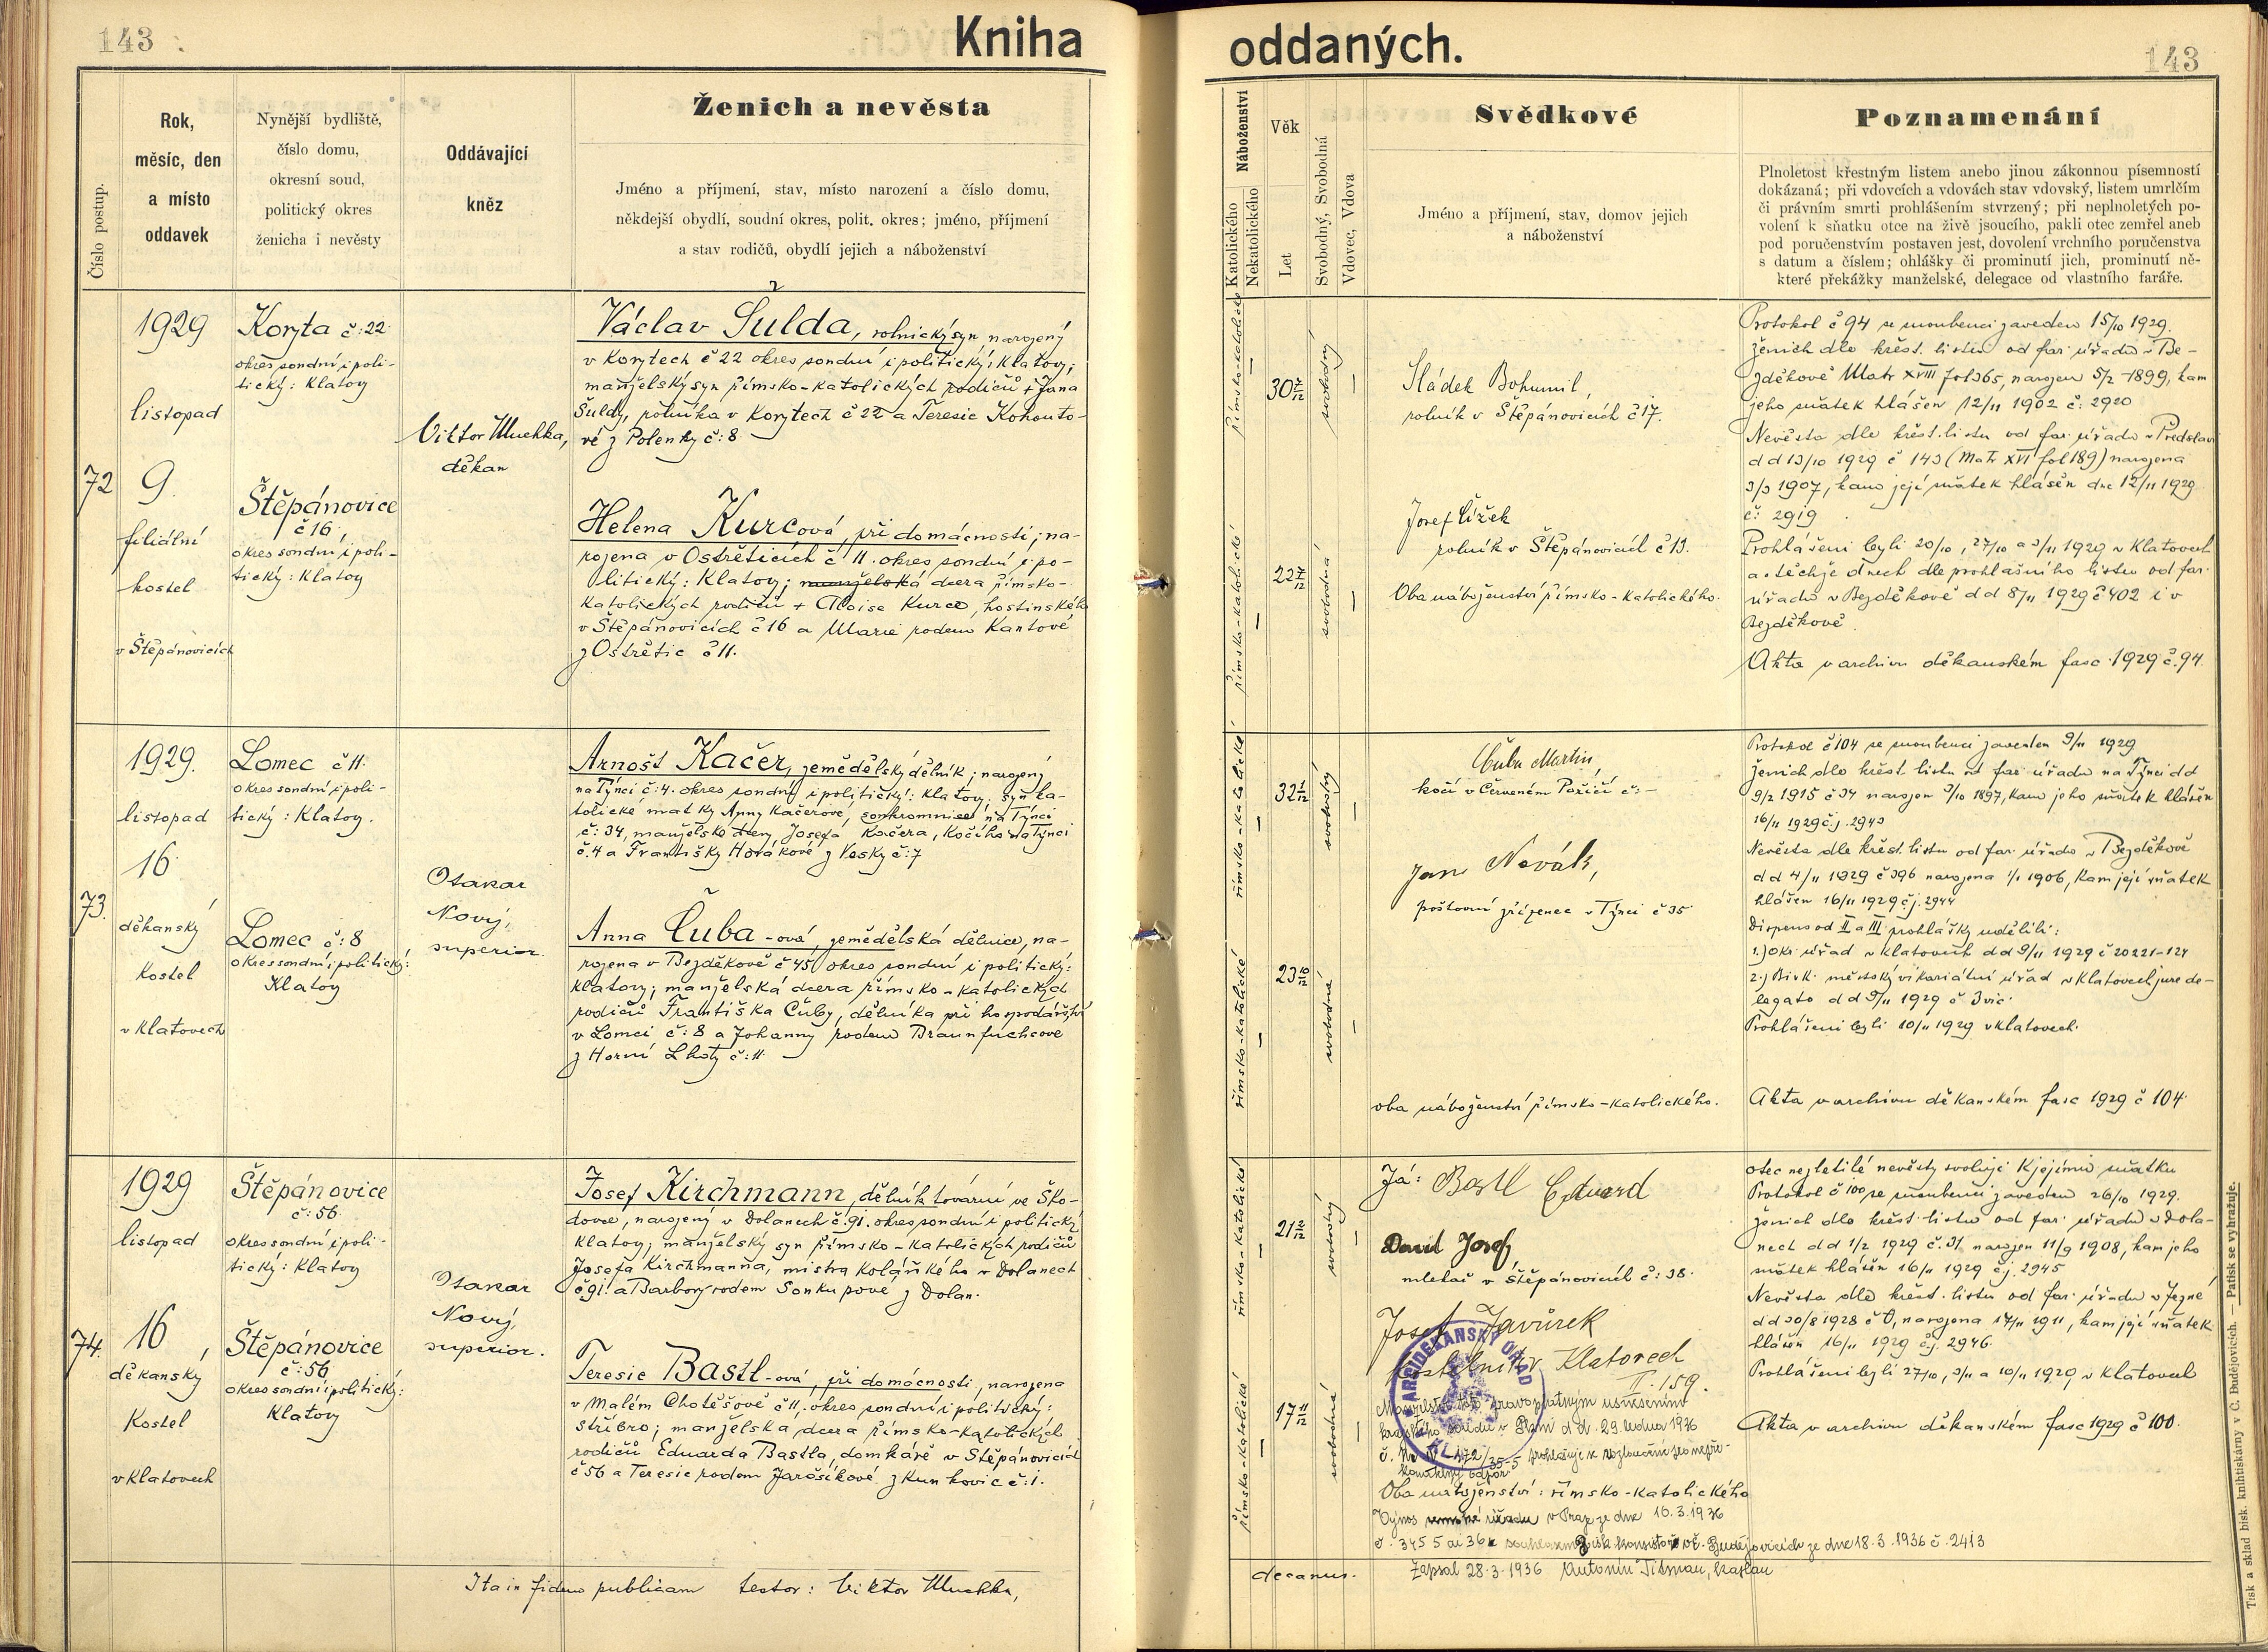 143
Kniha
oddaných.
143
Číslo postup.
Rok,
měsíc, den
a místo
oddavek
Nynější bydliště,
číslo domu,
okresní soud,
politický okres
ženicha i nevěsty
Oddávající
kněz
Ženich a nevěsta
Jméno a příjmení, stav, místo narození a číslo domu,
někdejší obydlí, soudní okres, polit. okres; jméno, příjmení
a stav rodičů, obydlí jejich a náboženství
Náboženství
Katolického
Nekatolického
Věk
Let
Svobodný, Svobodná
Vdovec, Vdova
Svědkové
Jméno a příjmení, stav, domov jejich
a náboženství
Poznamenání
Plnoletost křestným listem anebo jinou zákonnou písemností
dokázaná; při vdovcích a vdovách stav vdovský, listem umrlčím
či právním smrti prohlášením stvrzený; při neplnoletých po-
volení k sňatku otce na živě jsoucího, pakli otec zemřel aneb
pod poručenstvím postaven jest, dovolení vrchního poručenstva
s datum a číslem; ohlášky či prominutí jich, prominutí ně-
které překážky manželské, delegace od vlastního faráře.
72
1929
listopad
9.
filiální
kostel
v Štěpánovicích
Koryta č: 22
okres soudní i poli-
tický: Klatovy
Štěpánovice
č 16,
okres soudní i poli-
tický: Klatovy
Viktor
děkan
Václav Šulda, rolnický syn narozený
v Korytech č 22 okres soudní i politický: Klatovy;
manželský syn římsko-katolických rodičů + Jana
Šuldy, rolníka v Korytech č 22 a Teresie Kohouto-
vé z Polenky č: 8
Helena Kurcová, při domácnosti; na-
rozena v Ostřeticích č 11. okres soudní i po-
litický: Klatovy; manželská dcera římsko-
katolických rodičů + Aloise Kurce, hostinského
v Štěpánovicích č 16 a Marie rodem Kantové
z Ostřetic č 11.
římsko-katolické
30 7/12
svobodný
římsko-katolické
22 7/12
svobodná
Sládek Bohumil,
rolník v Štěpánovicích č 17.
Josef Čížek
rolník v Štěpánovicích č 13.
Oba náboženství římsko-katolického.
Protokol č 94 se snoubenci zaveden 15/10 1929.
Ženich dle křest. listu od far. úřadu v Be-
zděkově Matr XVIII fol 365, narozen 5/2 1899, kam
jeho sňatek hlášen 12/11 1902 č: 2920
Nevěsta dle křest. listu od far. úřadu v Předslavi
d d 13/10 1929 č 143 (Matr XVI fol 189) narozena
3/3 1907, kam její sňatek hlášen dne 12/11 1929
č: 2919
Prohlášeni byli 20/10, 27/10 a 3/11 1929 v Klatovech
a v těchže dnech dle prohlašního listu od far.
úřadu v Bezděkově d d 8/11 1929 č 402 i v
Bezděkově.
Akta v archivu děkanském fasc. 1929 č. 94.
73.
1929.
listopad
16
děkanský
kostel
v Klatovech
Lomec č 11.
okres soudní i poli-
tický: Klatovy.
Lomec č: 8
okres soudní i politický:
Klatovy
Otakar
Nový,
superior.
Arnošt Kačer, zemědělský dělník; narozený
na Týnci č: 4. okres soudní i politický: Klatovy; syn ka-
tolické matky Anny Kačerové, soukromnice na Týnci
č: 34, manželské dcery Josefa Kačera, kočího na Týnci
č. 4 a Františky Horákové z Vosky č: 7
Anna Čuba-ová, zemědělská dělnice, na-
rozena v Bezděkově č 45 okres soudní i politický:
Klatovy; manželská dcera římsko-katolických
rodičů Františka Čuby, dělníka při hospodářství
v Lomci č: 8 a Johanny rodem Braunfuchsové
z Horní Lhoty č: 11
římsko-katolické
32 1/12
svobodný
římsko-katolické
23 10/12
svobodná
Čuba Martin,
kočí v Červeném Poříčí č: -
Jan Novák,
poštovní zřízenec v Týnci č 35
oba náboženství římsko-katolického.
Protokol č 104 se snoubenci zaveden 9/11 1929
Ženich dle křest. listu od far. úřadu na Týnci d d
9/2 1915 č 34 narozen 3/10 1897, kam jeho sňatek hlášen
16/11 1929 č.j. 2943
Nevěsta dle křest. listu od far. úřadu v Bezděkově
d d 4/11 1929 č 396 narozena 1/1 1906, kam její sňatek
hlášen 16/11 1929 č.j. 2944
Dispens od II a III prohlášky udělili:
1.) Okr. úřad v Klatovech d d 9/11 1929 č 20221-124
2.) Bisk. městský vikariátní úřad v Klatovech jure de-
legato d d 9/11 1929 č 3 vic.
Prohlášeni byli 10/11 1929 v Klatovech.
Akta v archivu děkanském fasc 1929 č 104.
74.
1929
listopad
16,
děkanský
kostel
v Klatovech
Štěpánovice
č: 56
okres soudní i poli-
tický: Klatovy
Štěpánovice
č: 56
okres soudní i politický:
Klatovy
Otakar
Nový,
superior.
Josef Kirchmann, dělník tovární ve Ško-
dovce, narozený v Dolanech č. 91. okres soudní i politický
Klatovy; manželský syn římsko-katolických rodičů
Josefa Kirchmanna, mistra kolářského v Dolanech
č 91. a Barbory rodem Soukupové z Dolan.
Teresie Bastl-ová, při domácnosti, narozena
v Malém Chotěšově č 11. okres soudní i politický:
Stříbro; manželská dcera římsko-katolických
rodičů Eduarda Bastla, domkáře v Štěpánovicích
č 56 a Teresie rodem Jarošíkové z Kunkovic č: 1.
římsko-katolické
21 2/12
svobodný
římsko-katolické
17 11/12
svobodná
Já: Bastl Eduard
David Josef,
mlekař v Štěpánovicích č: 38.
Josef Javůrek
kostelník v Klatovech
I. 159.
ARCIDĚKANSKÝ ÚŘAD
Manželství toto pravoplatným usnesením
krajského soudu v Plzni d d. 29. ledna 1936
prohlašuje se rozloučeno pro nepře-
konatelný odpor.
Oba náboženství: římsko-katolického
Výnos v Praze ze dne 16. 3. 1936
č. 3455 ai 36 bisk. konsistoře v Č. Budějovicích ze dne 18. 3. 1936 č. 2413
Zapsal 28. 3. 1936 Antonín kaplan
Otec nezletilé nevěsty svoluje k jejímu sňatku
Protokol č 100 se snoubenci zaveden 26/10 1929.
Ženich dle křest. listu od far. úřadu v Dola-
nech d d 1/2 1929 č. 31 narozen 11/9 1908, kam jeho
sňatek hlášen 16/11 1929 č.j. 2945
Nevěsta dle křest. listu od far. úřadu v Jezné
d d 30/8 1928 č 0, narozena 17/11 1911, kam její sňatek
hlášen 16/11 1929 č.j. 2946.
Prohlášeni byli 27/10, 3/11 a 10/11 1929 v Klatovech
Akta v archivu děkanském fasc 1929 č 100.
Ita in fidem publicam testor: Viktor
decanus.
Tisk a sklad bisk. knihtiskárny v Č. Budějovicích. — Patisk se vyhražuje.